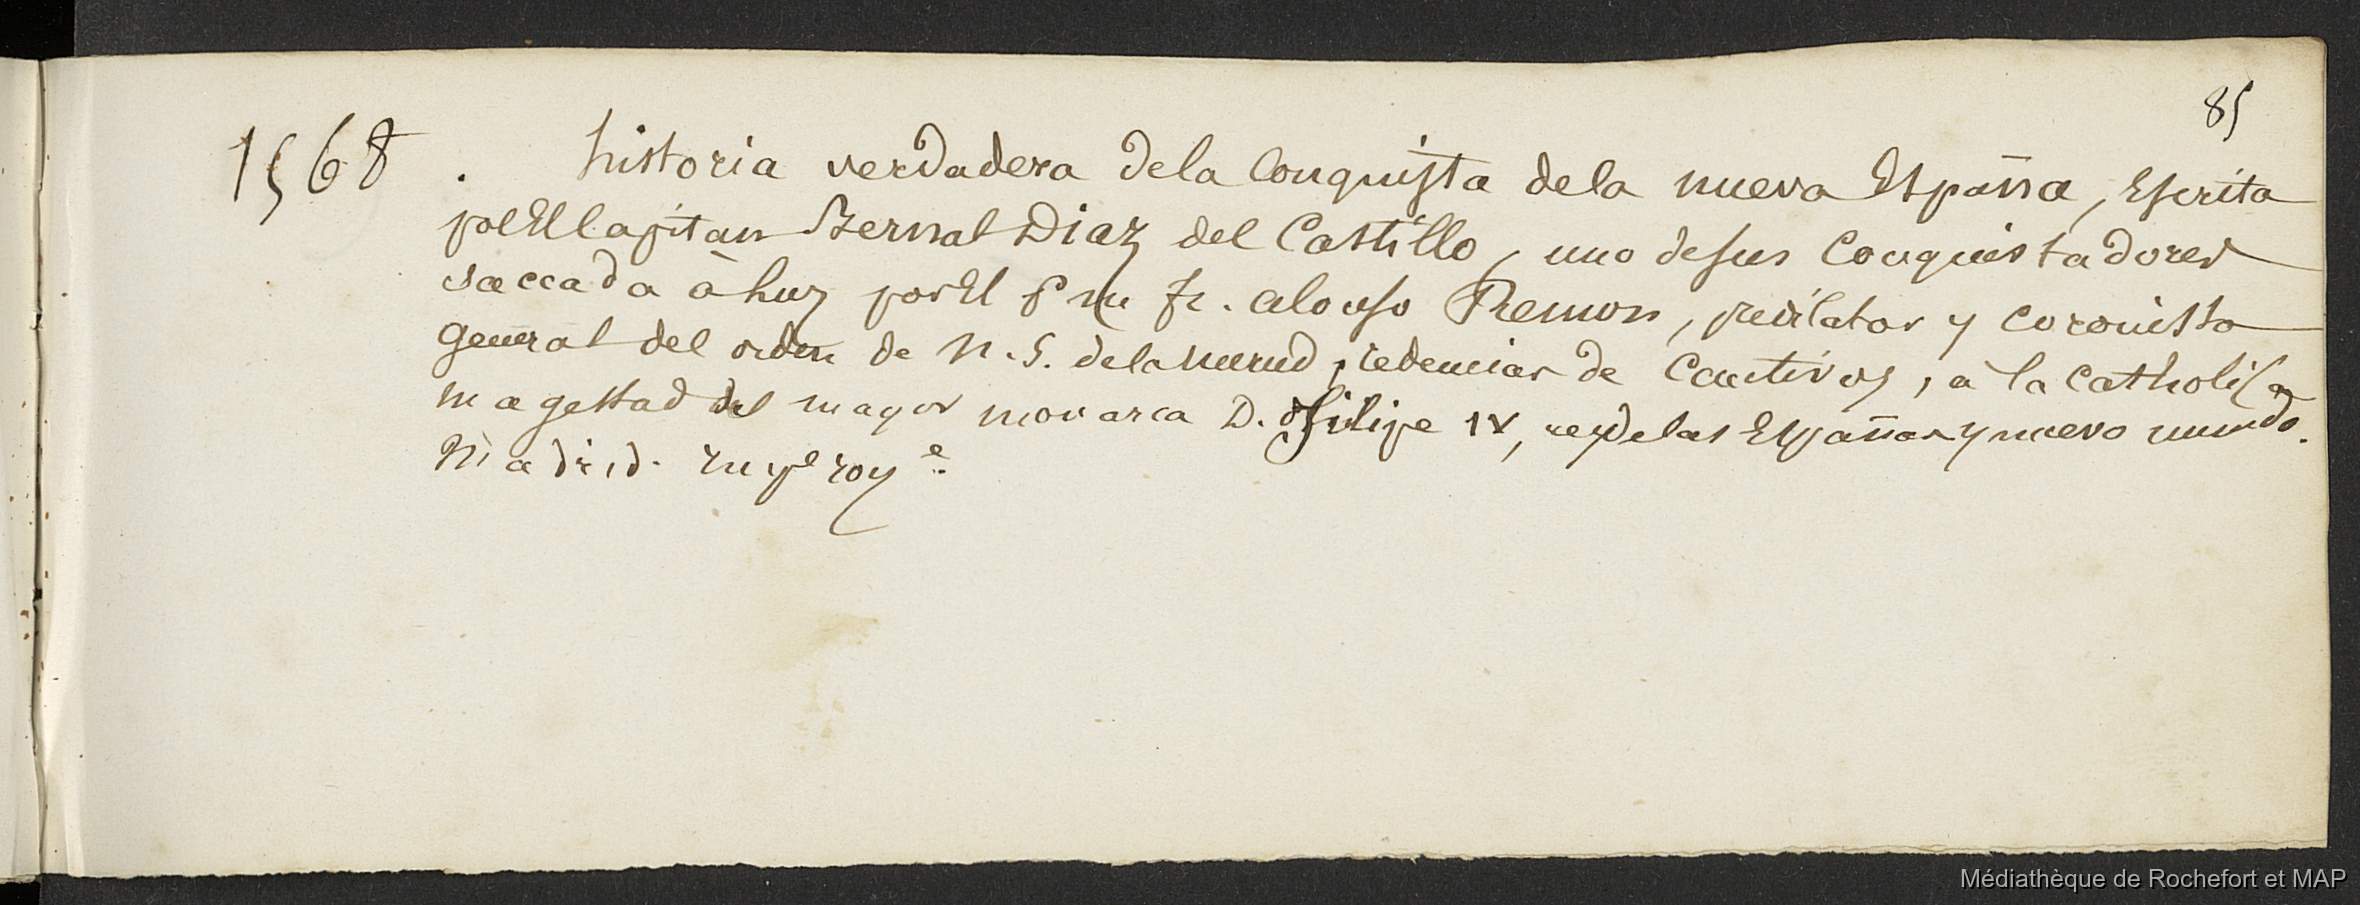 85
1568. historia verdadera dela Conquista dela nueva España, Escrita
porEl Capitan Bernal Diaz del Castillo, uno desus Conquistadores
saccada à luz porEl P. m. fr. alonso Remon, predicator y coronista
general del orden de N. S. dela merced, redencion de Cautivos, a la catholica
magestad del mayor monarca D. filipe IV, rey delas Españas y nuevo mundo.
Madrid.
Médiathèque de Rochefort et MAP